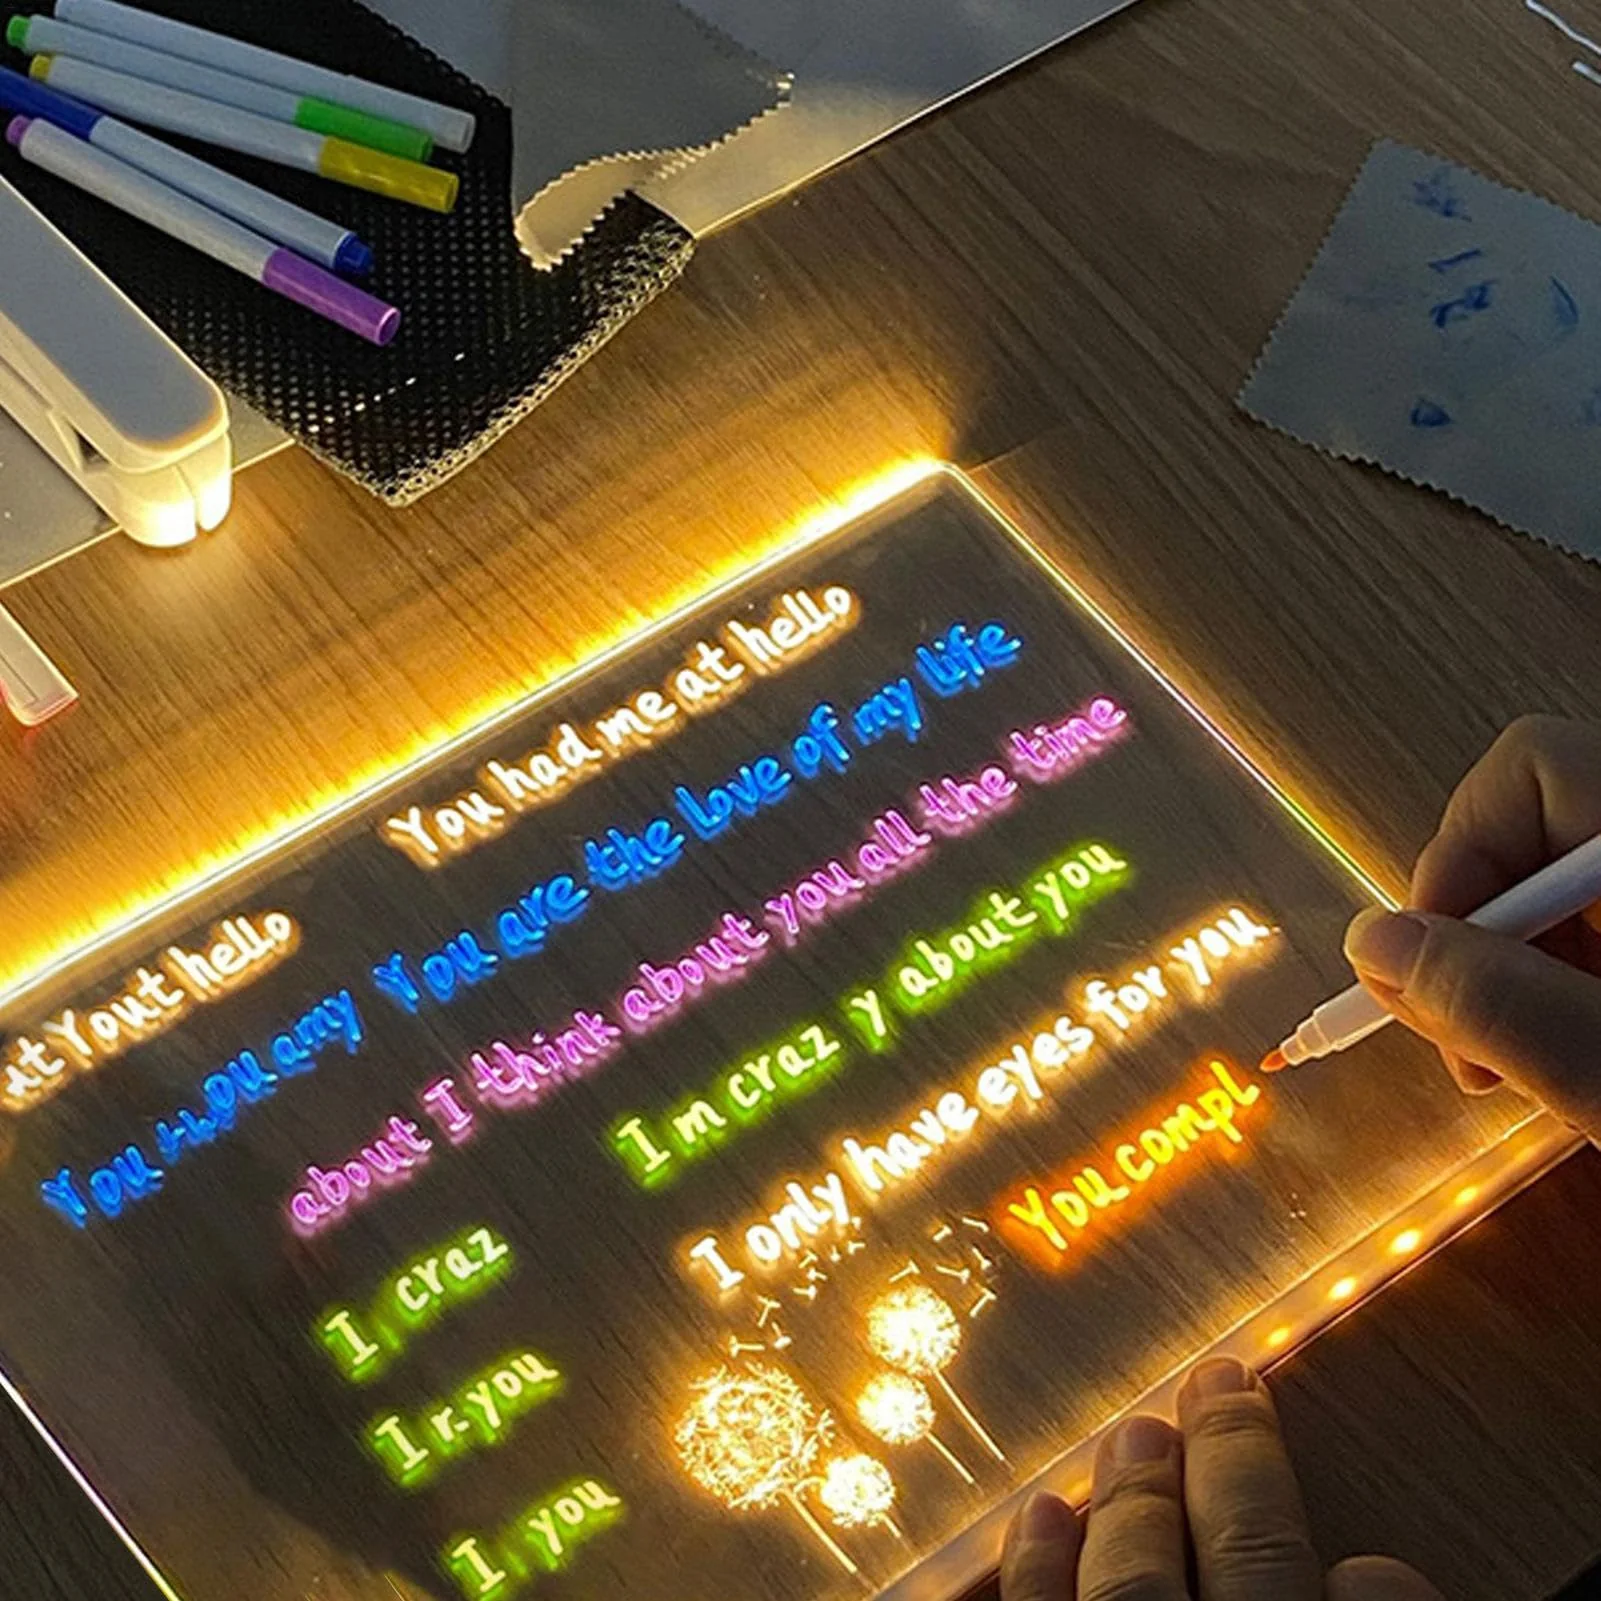 You had me at hello
at Yout hello
You are the love of my life
You amy
about I think about you all the time
Im craz y about you
I only have eyes for you.
You compl
I craz
I r you
I you